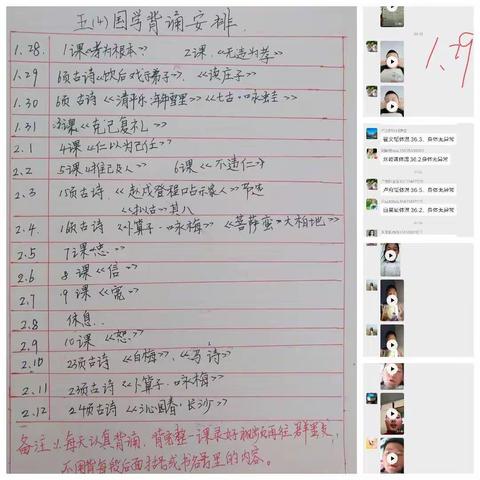 五(4)国学背诵安排.
1.28. 1课《孝为根本》 2课,《无违为孝》
1.29 6页古诗《饮后戏示弟子》,《读庄子》
1.30 6页 古诗 《清平乐·年年雪里》《七古·咏蛙》
1.31 3课《克己复礼》
2.1 4课《仁以为己任》
2.2 5课《推己及人》 6课《不违仁》
2.3 15页古诗,
《拟古》其八
2.4. 16页古诗《卜算子·咏梅》《菩萨蛮·大柏地》
2.5 7课《忠》
2.6 8课《信》
2.7 9课《宽》
2.8 休息..
2.9 10课《恕》
2.10 23页古诗《白梅》、《马诗》
2.11 23页古诗《卜算子·咏梅》
2.12 24页古诗《沁园春·长沙》
备注:1.每天认真背诵,背完整一课录好视频再往群里发,
不用背每段后面括号或书名号里的内容。
1.29
体温36.3,身体无异常
体温36.2,身体无异常
体温36.5,身体无异常
体温36.2,身体无异常